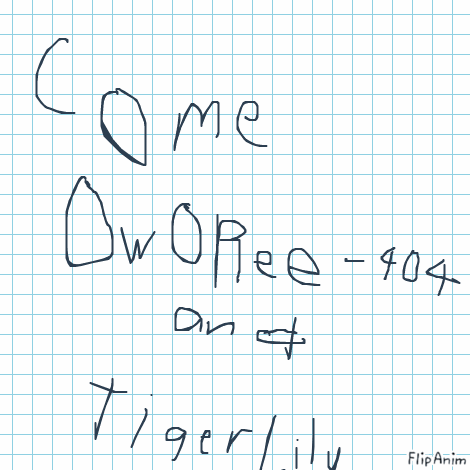 Come
OwORee-404
and
Tigerlily
FlipAnim